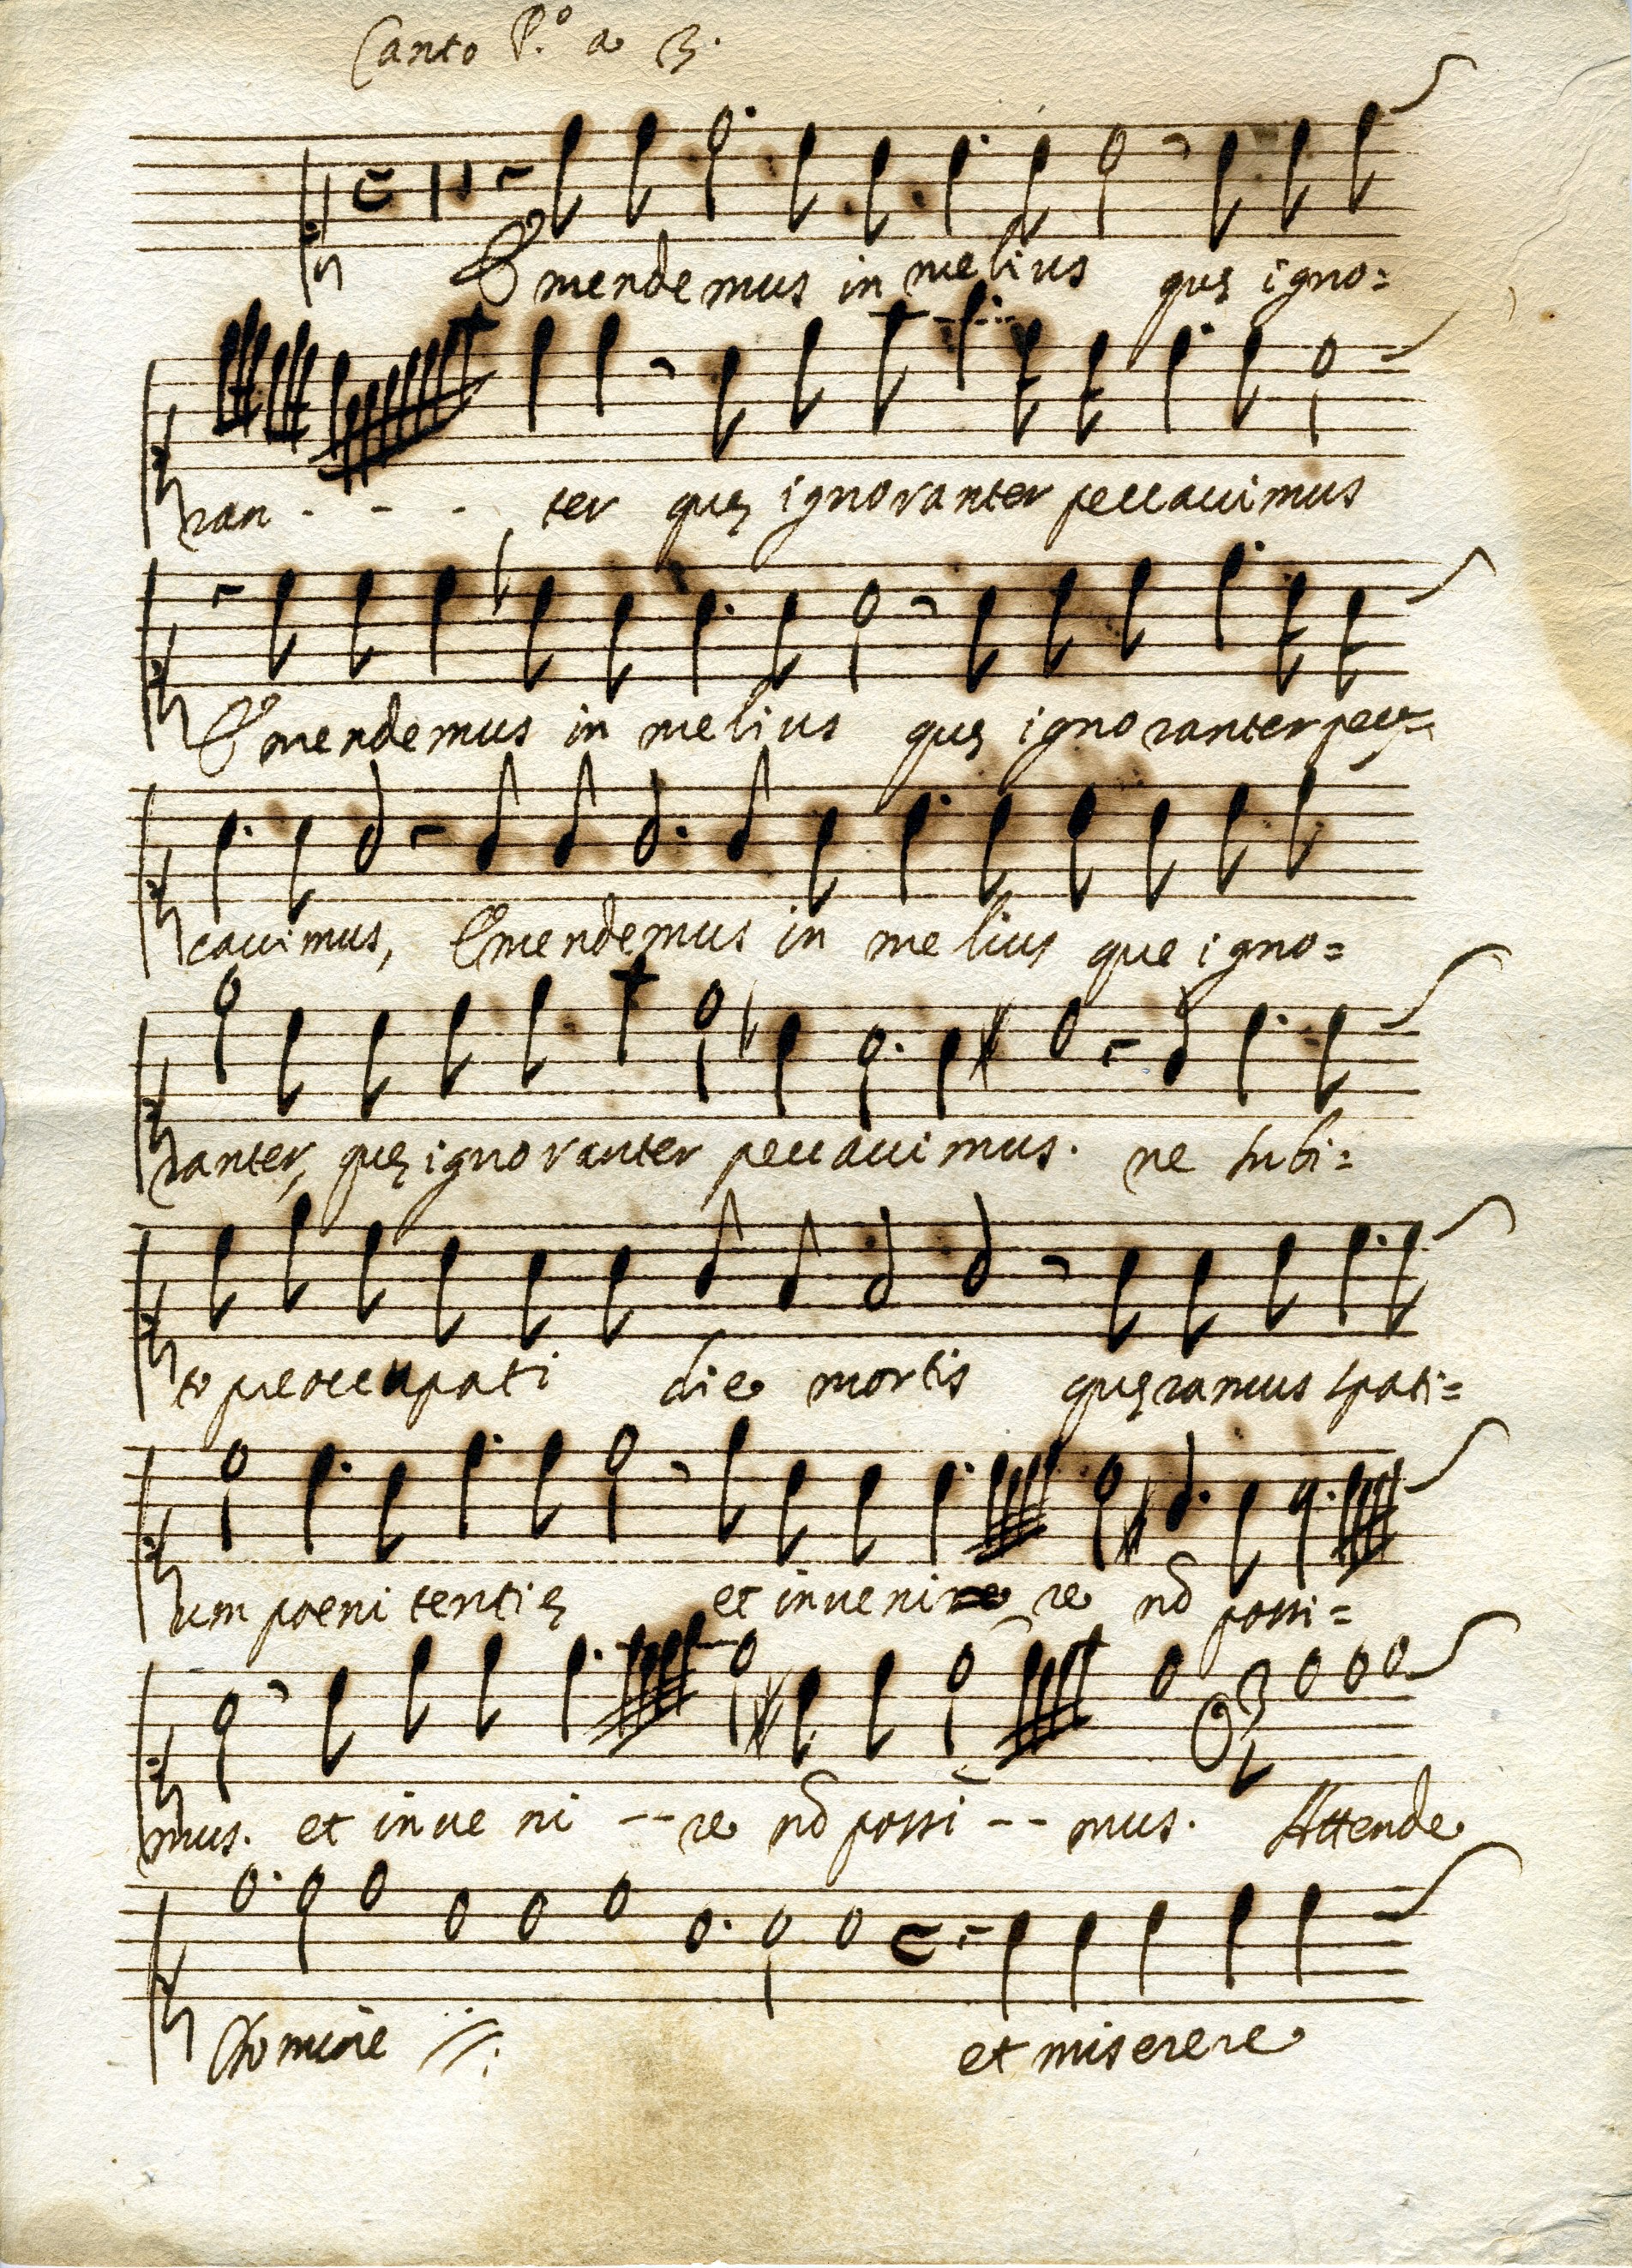 Canto P.º a 3.
Emendemus in melius quę igno=
ran - - - ter quę ignoranter peccavimus
Emendemus in melius quę ignoranter pec=
cavimus, Emendemus in melius que igno=
ranter, quę ignoranter peccavimus. ne subi=
to preoccupati die mortis quęramus spati=
um poenitentię et invenire re nō possi=
mus. et inveni -- re nō possi -- mus. Attende
Domine //: et miserere